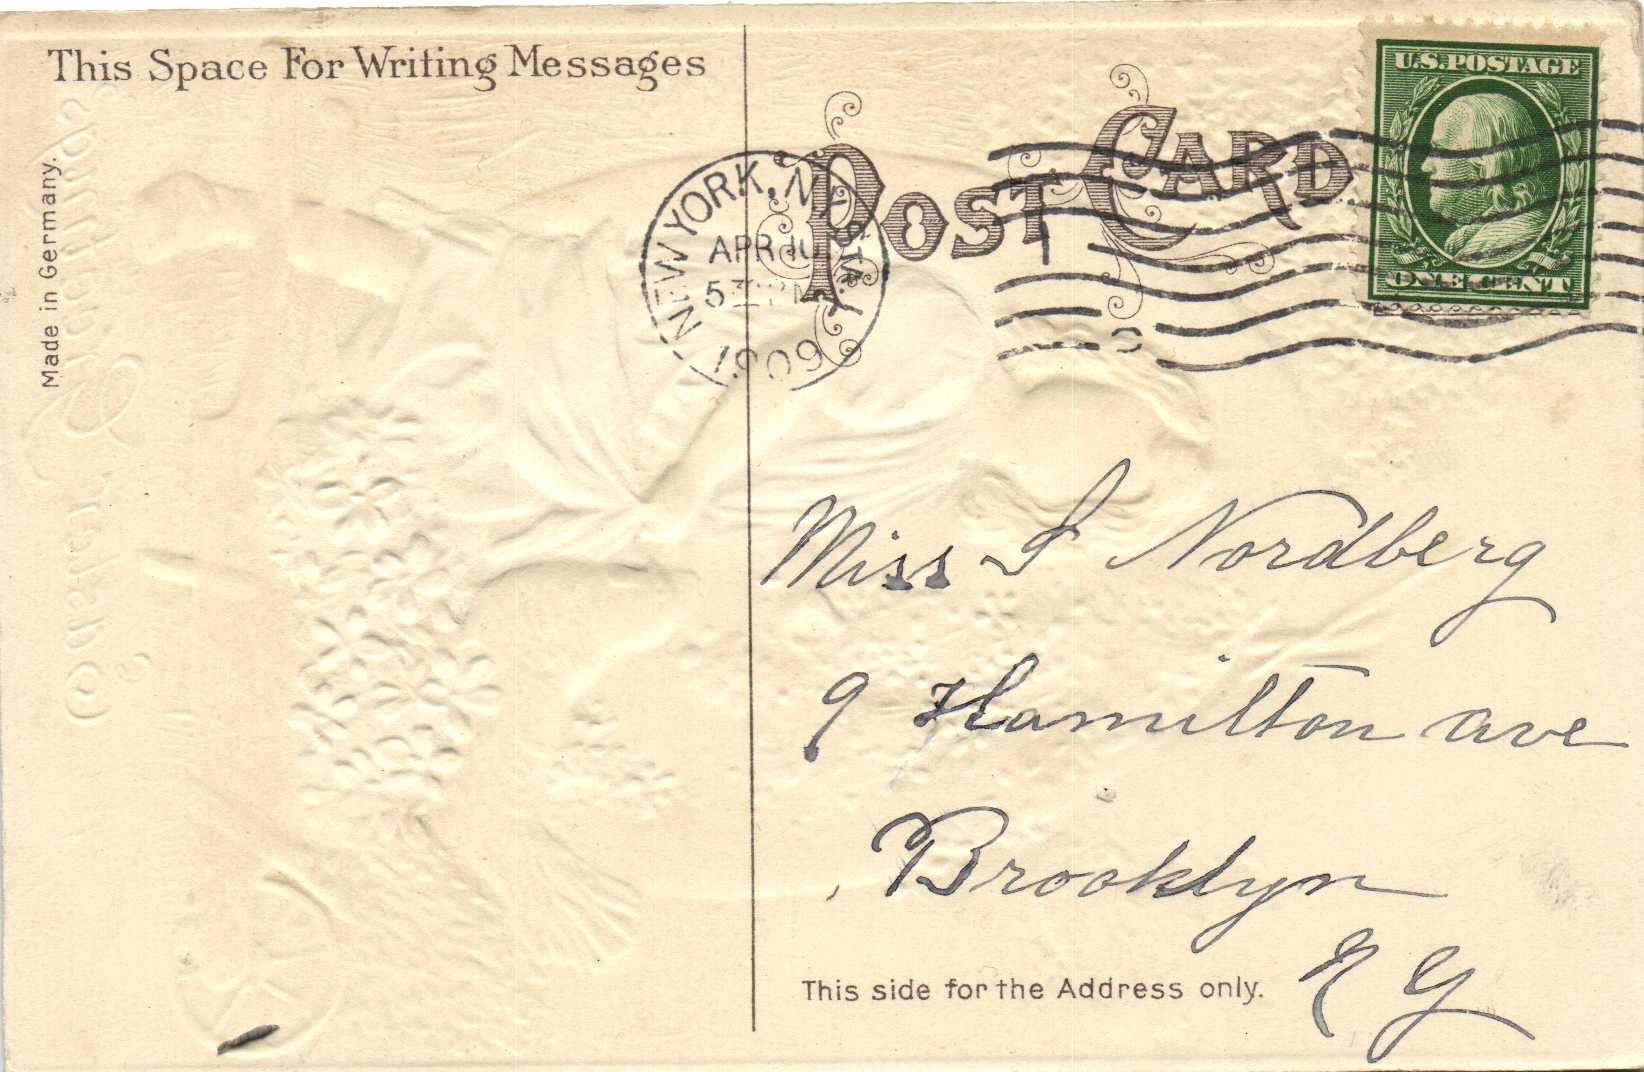 This Space For Writing Messages
Made in Germany.
POST CARD
U.S. POSTAGE
ONE CENT
NEW YORK, N.Y.
APR 10
1909
Miss S Nordberg
9 Hamilton ave
Brooklyn
N Y
This side for the Address only.